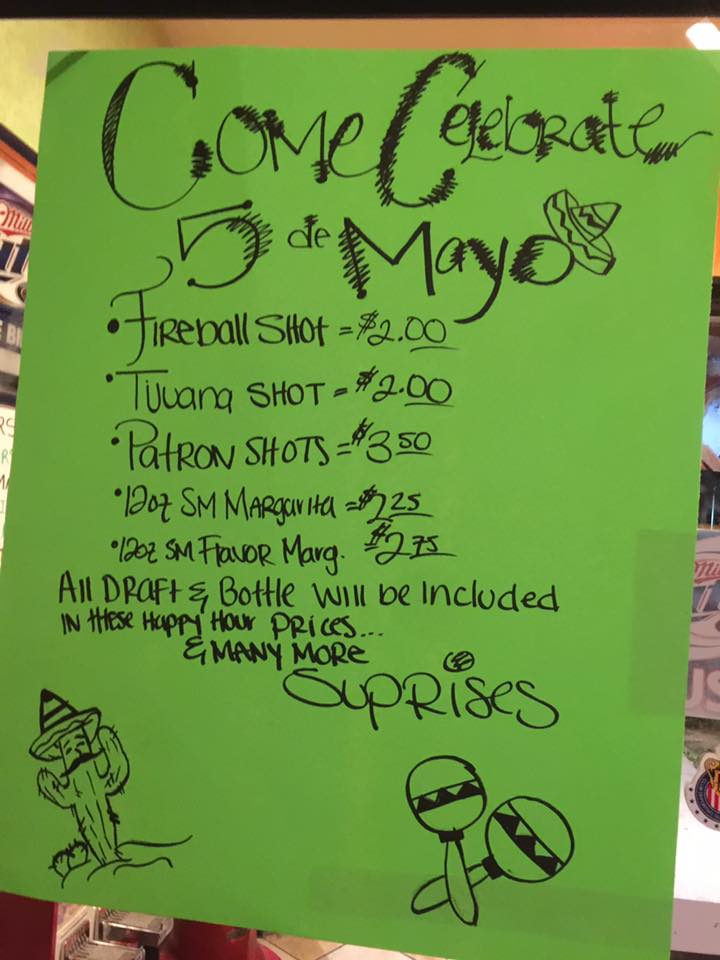 Come Celebrate
5 de Mayo
• Fireball SHot = $2.00
• Tuuana SHOT = $2.00
• PatRON SHOTS = $3.50
• 12oz SM Margarita = $2.25
• 12oz SM Flavor Marg. = $2.75
All DRaft & Bottle will be Included
IN these Happy Hour PRices...
& MANY MORe
SupRises